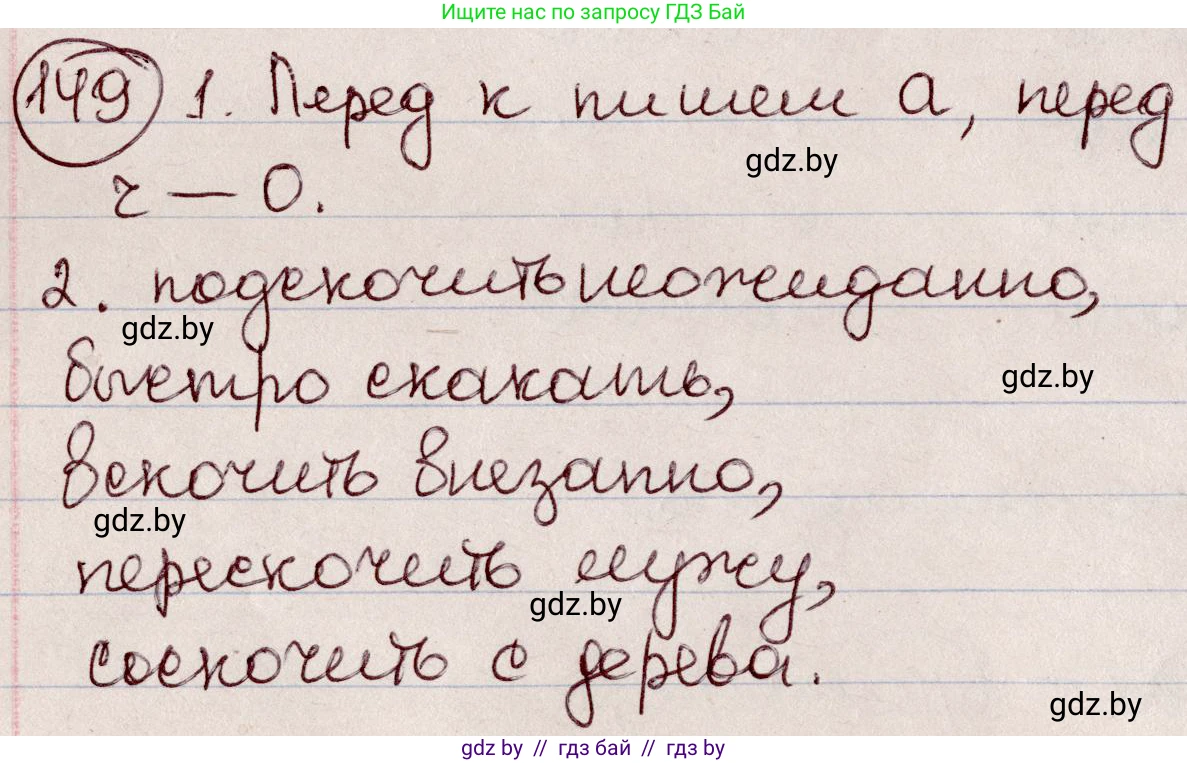 Ищите нас по запросу ГДЗ Бай
149 1. Перед к пишем а, перед
gdz.by
ч — О.
2. подскочить неожиданно,
gdz.by
быстро скакать,
gdz.by
вскочить внезапно,
gdz.by
перескочить лужу,
gdz.by
соскочить с дерева.
gdz.by
gdz by // гдз бай // гдз by